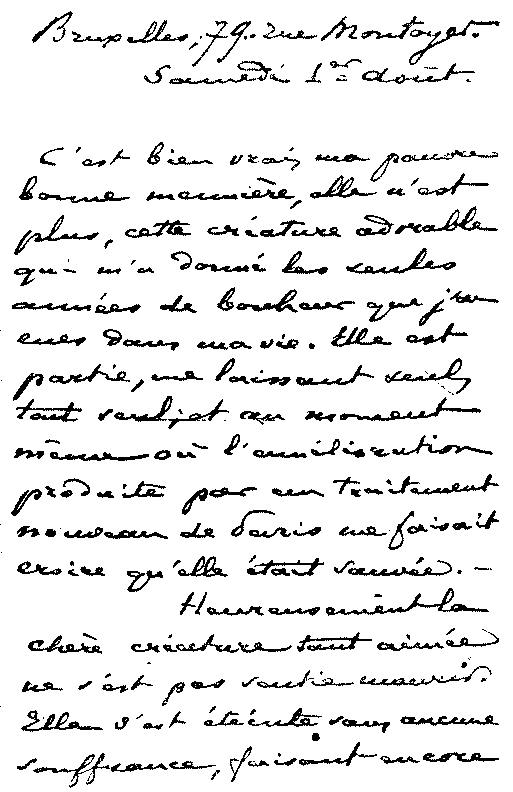 Bruxelles, 79. rue Montoyer.
Samedi 1er août.
C'est bien vrai, ma pauvre
bonne meunière, elle n'est
plus, cette créature adorable
qui m'a donné les seules
années de bonheur que j'aie
eues dans ma vie. Elle est
partie, me laissant seul,
tout seul, et au moment
même où l'amélioration
produite par un traitement
nouveau de Paris me faisait
croire qu'elle était sauvée. -
Heureusement la
chère créature tant aimée
ne s'est pas sentie mourir.
Elle s'est éteinte sans aucune
souffrance, faisant encore